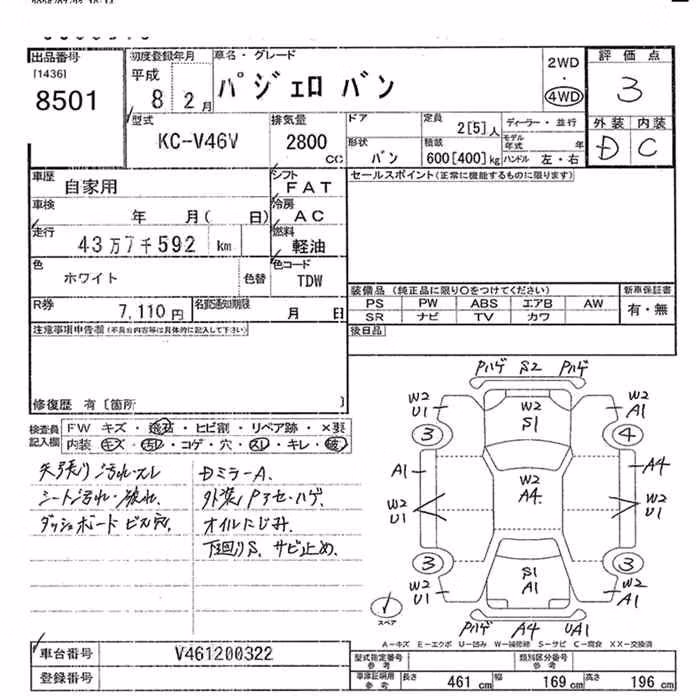 出品番号
[1436]
8501
初度登録年月
平成
8 2月
車名・グレード
パジェロ バン
2WD
・
4WD
評価点
3
外装 内装
D C
型式
KC-V46V
排気量
2800
CC
ドア
形状
バン
定員
2[5]人
積載
600[400]kg
ディーラー・並行
モデル年式 年
ハンドル 左・右
車歴
自家用
シフト
FAT
車検
年 月( 日)
冷房
AC
走行
43万7千592 km
燃料
軽油
色
ホワイト
色替
色コード
TDW
R券
7,110円
名変通知期限
月 日
セールスポイント(正常に機能するものに限ります)
装備品 (純正品に限り○をつけてください)
PS PW ABS エアB AW
SR ナビ TV カワ
新車保証書
有・無
後日品
注意事項申告欄(不具合内容等は具体的に記入して下さい)
修復歴 有[箇所 ]
検査員記入欄
FW キズ・飛石・ヒビ割・リペア跡・×要
内装 キズ・汚れ・コゲ・穴・スレ・キレ・破
天張り汚れ・スレ
シート汚れ・破れ.
ダッシュボード ビス穴.
DミラーA.
外装Pアセ・ハゲ
オイルにじみ.
下廻りS. サビ止め.
Pハゲ S2 Pハゲ
W2
U1
W2
S1
W2
A1
3
4
A1
W2
A4
A4
W2
U1
W2
U1
3
3
W2
U1
S1
A1
W2
A1
スペア
Pハゲ A4 UA1
A-キズ E-エクボ U-凹み W-補修跡 S-サビ C-腐食 XX-交換済
車台番号
V461200322
登録番号
型式指定番号
参考
類別区分番号
参考
車庫証明用
参考
長さ 461 cm
幅 169 cm
高さ 196 cm